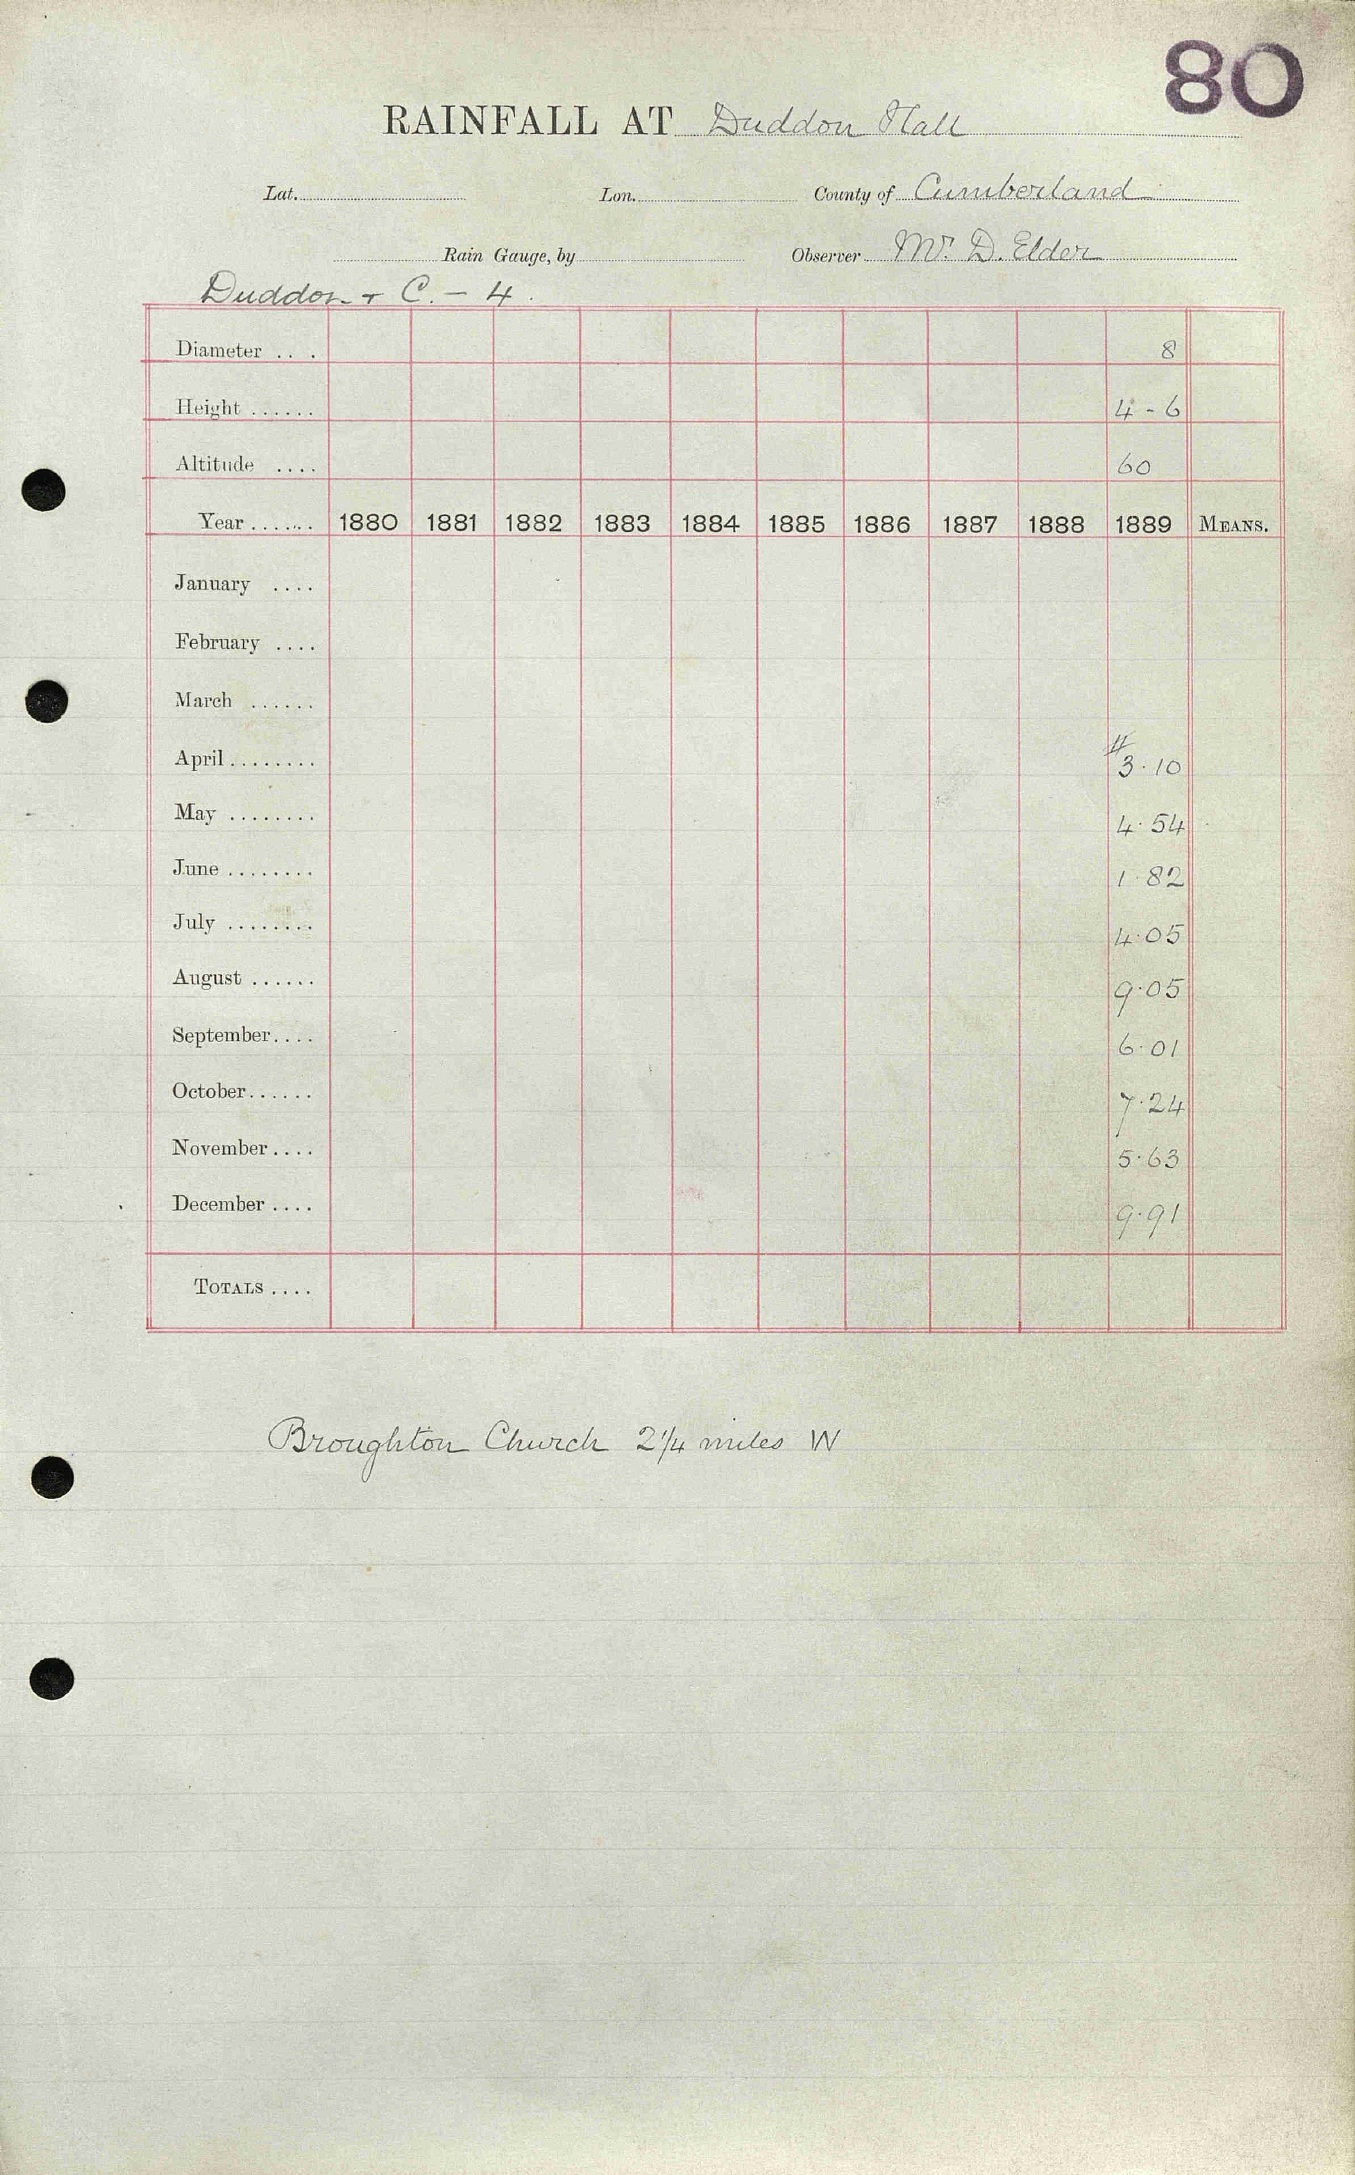 80
RAINFALL AT Duddon Hall
Lat. Lon. County of Cumberland
Rain Gauge, by Observer Mr. D. Elder
Duddon + C. - 4.
Diameter ... 8
Height ...... 4 - 6
Altitude .... 60
Year ...... 1880 1881 1882 1883 1884 1885 1886 1887 1888 1889 MEANS.
January ....
February ....
March ......
April ........ # 3.10
May ........ 4.54
June ........ 1.82
July ........ 4.05
August ...... 9.05
September .... 6.01
October ...... 7.24
November .... 5.63
December .... 9.91
TOTALS ....
Broughton Church 2 1/4 miles W